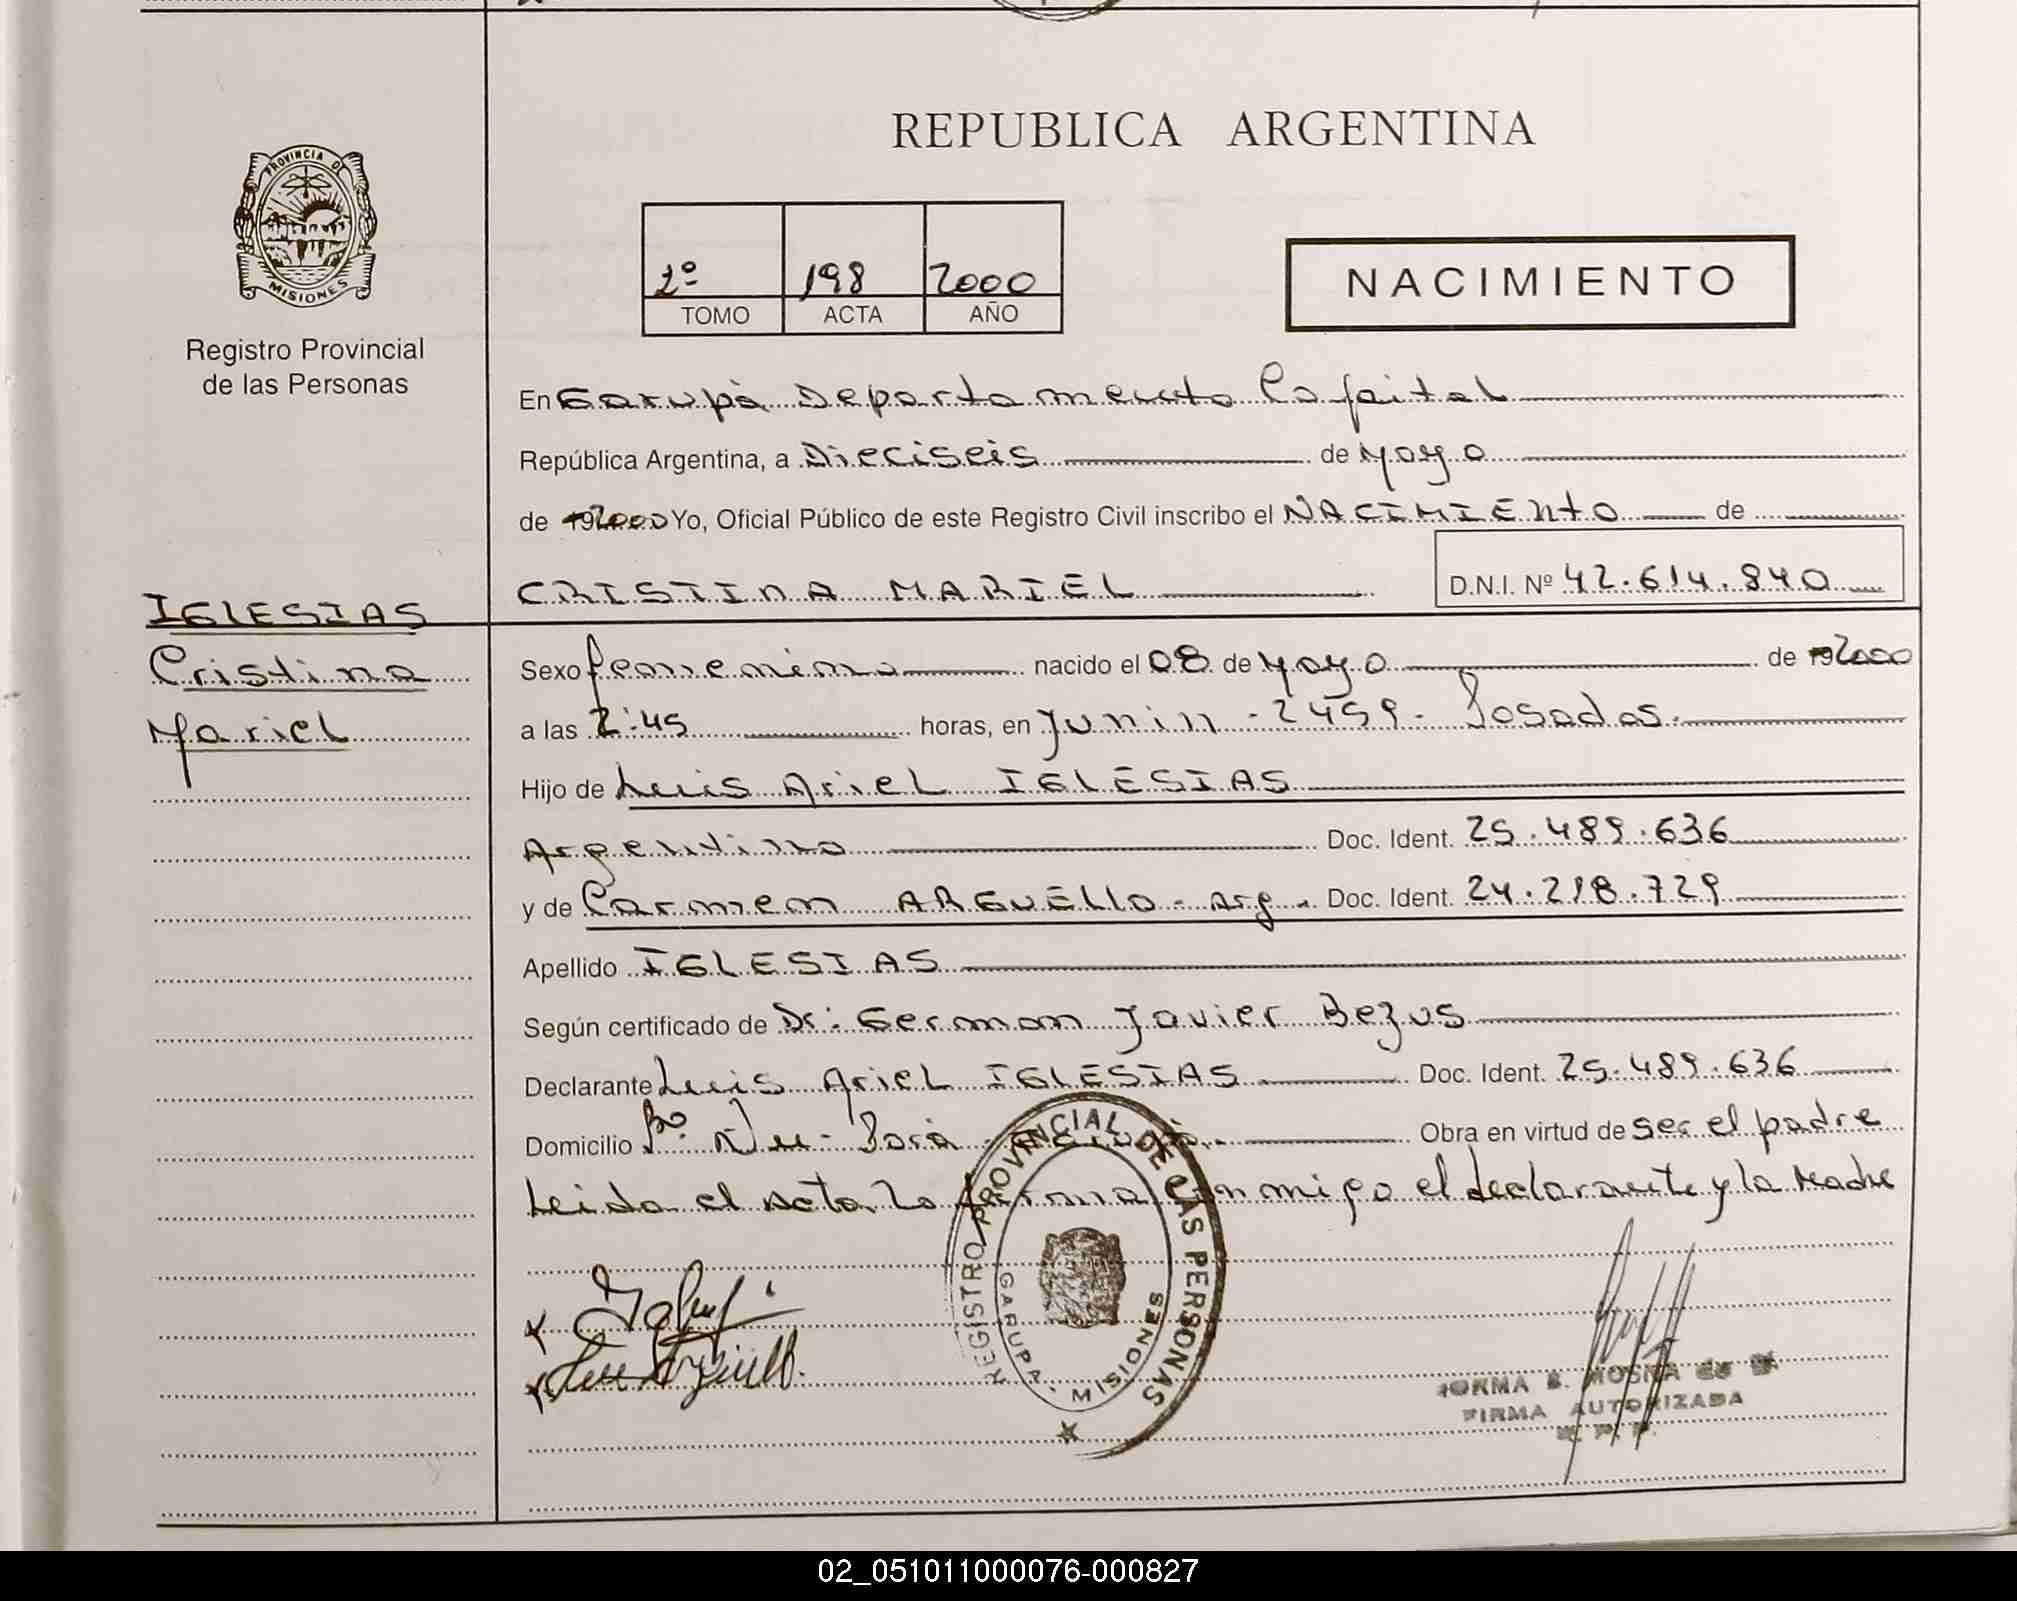 REPUBLICA ARGENTINA
PROVINCIA DE
MISIONES
Registro Provincial
de las Personas
2º 198 2000
TOMO ACTA AÑO
NACIMIENTO
En Garupà Departamento Capital
República Argentina, a Dieciseis de Mayo
de 192000 Yo, Oficial Público de este Registro Civil inscribo el NACIMIENTO de
CRISTINA MARIEL D.N.I. Nº 42.614.840
IGLESIAS
Cristina
Mariel
Sexo femenino nacido el 08 de Mayo de 192000
a las 2:45 horas, en Junin - 2459 - Posadas.
Hijo de Luis Ariel IGLESIAS
Argentino Doc. Ident. 25.489.636
y de Carmen ARGUELLO - Arg. Doc. Ident. 24.218.729
Apellido IGLESIAS
Según certificado de Dr: German Javier Bezus
Declarante Luis Ariel IGLESIAS Doc. Ident. 25.489.636
Domicilio Bº Ñu - Porà - Obra en virtud de ser el padre
Leida el Acta la firma conmigo el declarante y la Madre
REGISTRO PROVINCIAL DE LAS PERSONAS
GARUPA - MISIONES
NORMA B. MOSNA de
FIRMA AUTORIZADA
R. P. P.
02_051011000076-000827